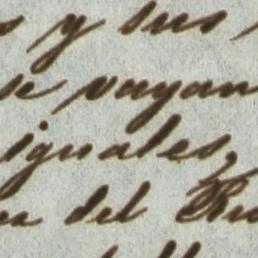 y sus
se vayan
iguales,
del